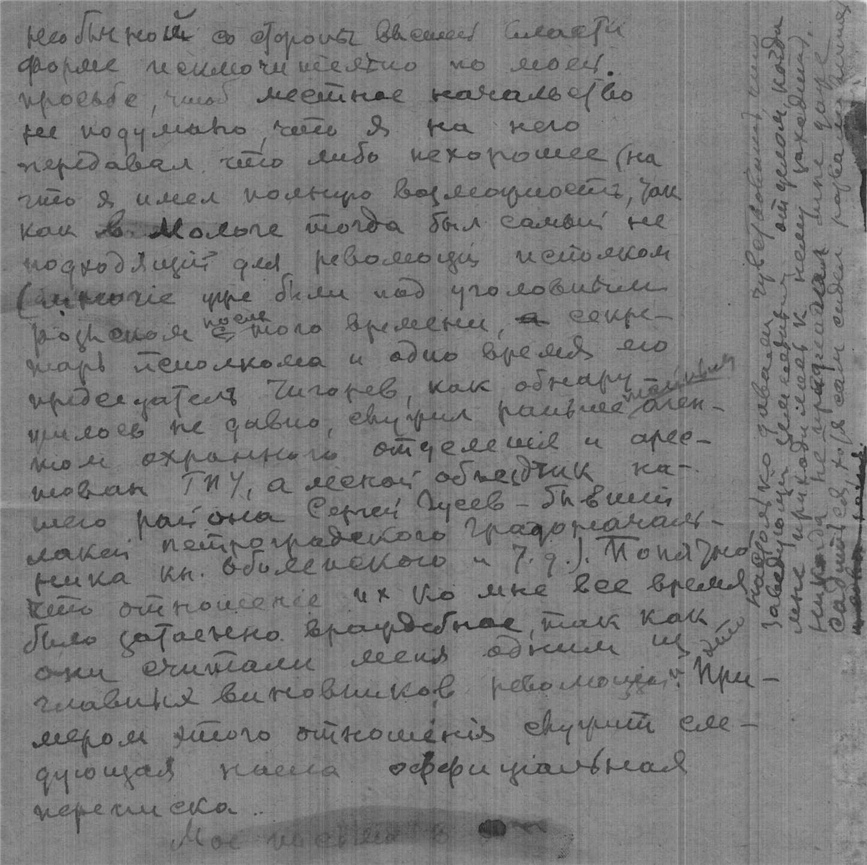 необычной со стороны высшей власти
форме исключительно по моей
просьбе, чтоб местное начальство
не подумало, что я на него
передавал что либо нехорошее (на
что я имел полную возможность, так
как в Мологе тогда был самый не
подходящий для революціи исполком
(многіе уже были под уголовным
розыском после того времени, секре-
тарь исполкома и одно время его
председатель Чигарев, как обнару-
жилось не давно, служил раньше тайным аген-
том охранного отделенія и арес-
тован ГПУ, а лесной объездчик на-
шего района Сергей Гусев - бывший
лакей петроградского градоначаль-
ника кн. Оболенского и т.д.). Понятно
что отношеніе их ко мне все время
было затаенно враждебное, так как
они считали меня одним из
главных виновников революціи. При-
мером этого отношенія служит сле-
дующая наша оффиціальная
переписка.
Мое
это
настолько давали чувствовать, что
заведующій земельным отделом, когда
мне приходилось к нему заходить,
никогда не предлагал мне даже
садиться, хотя сам сидел